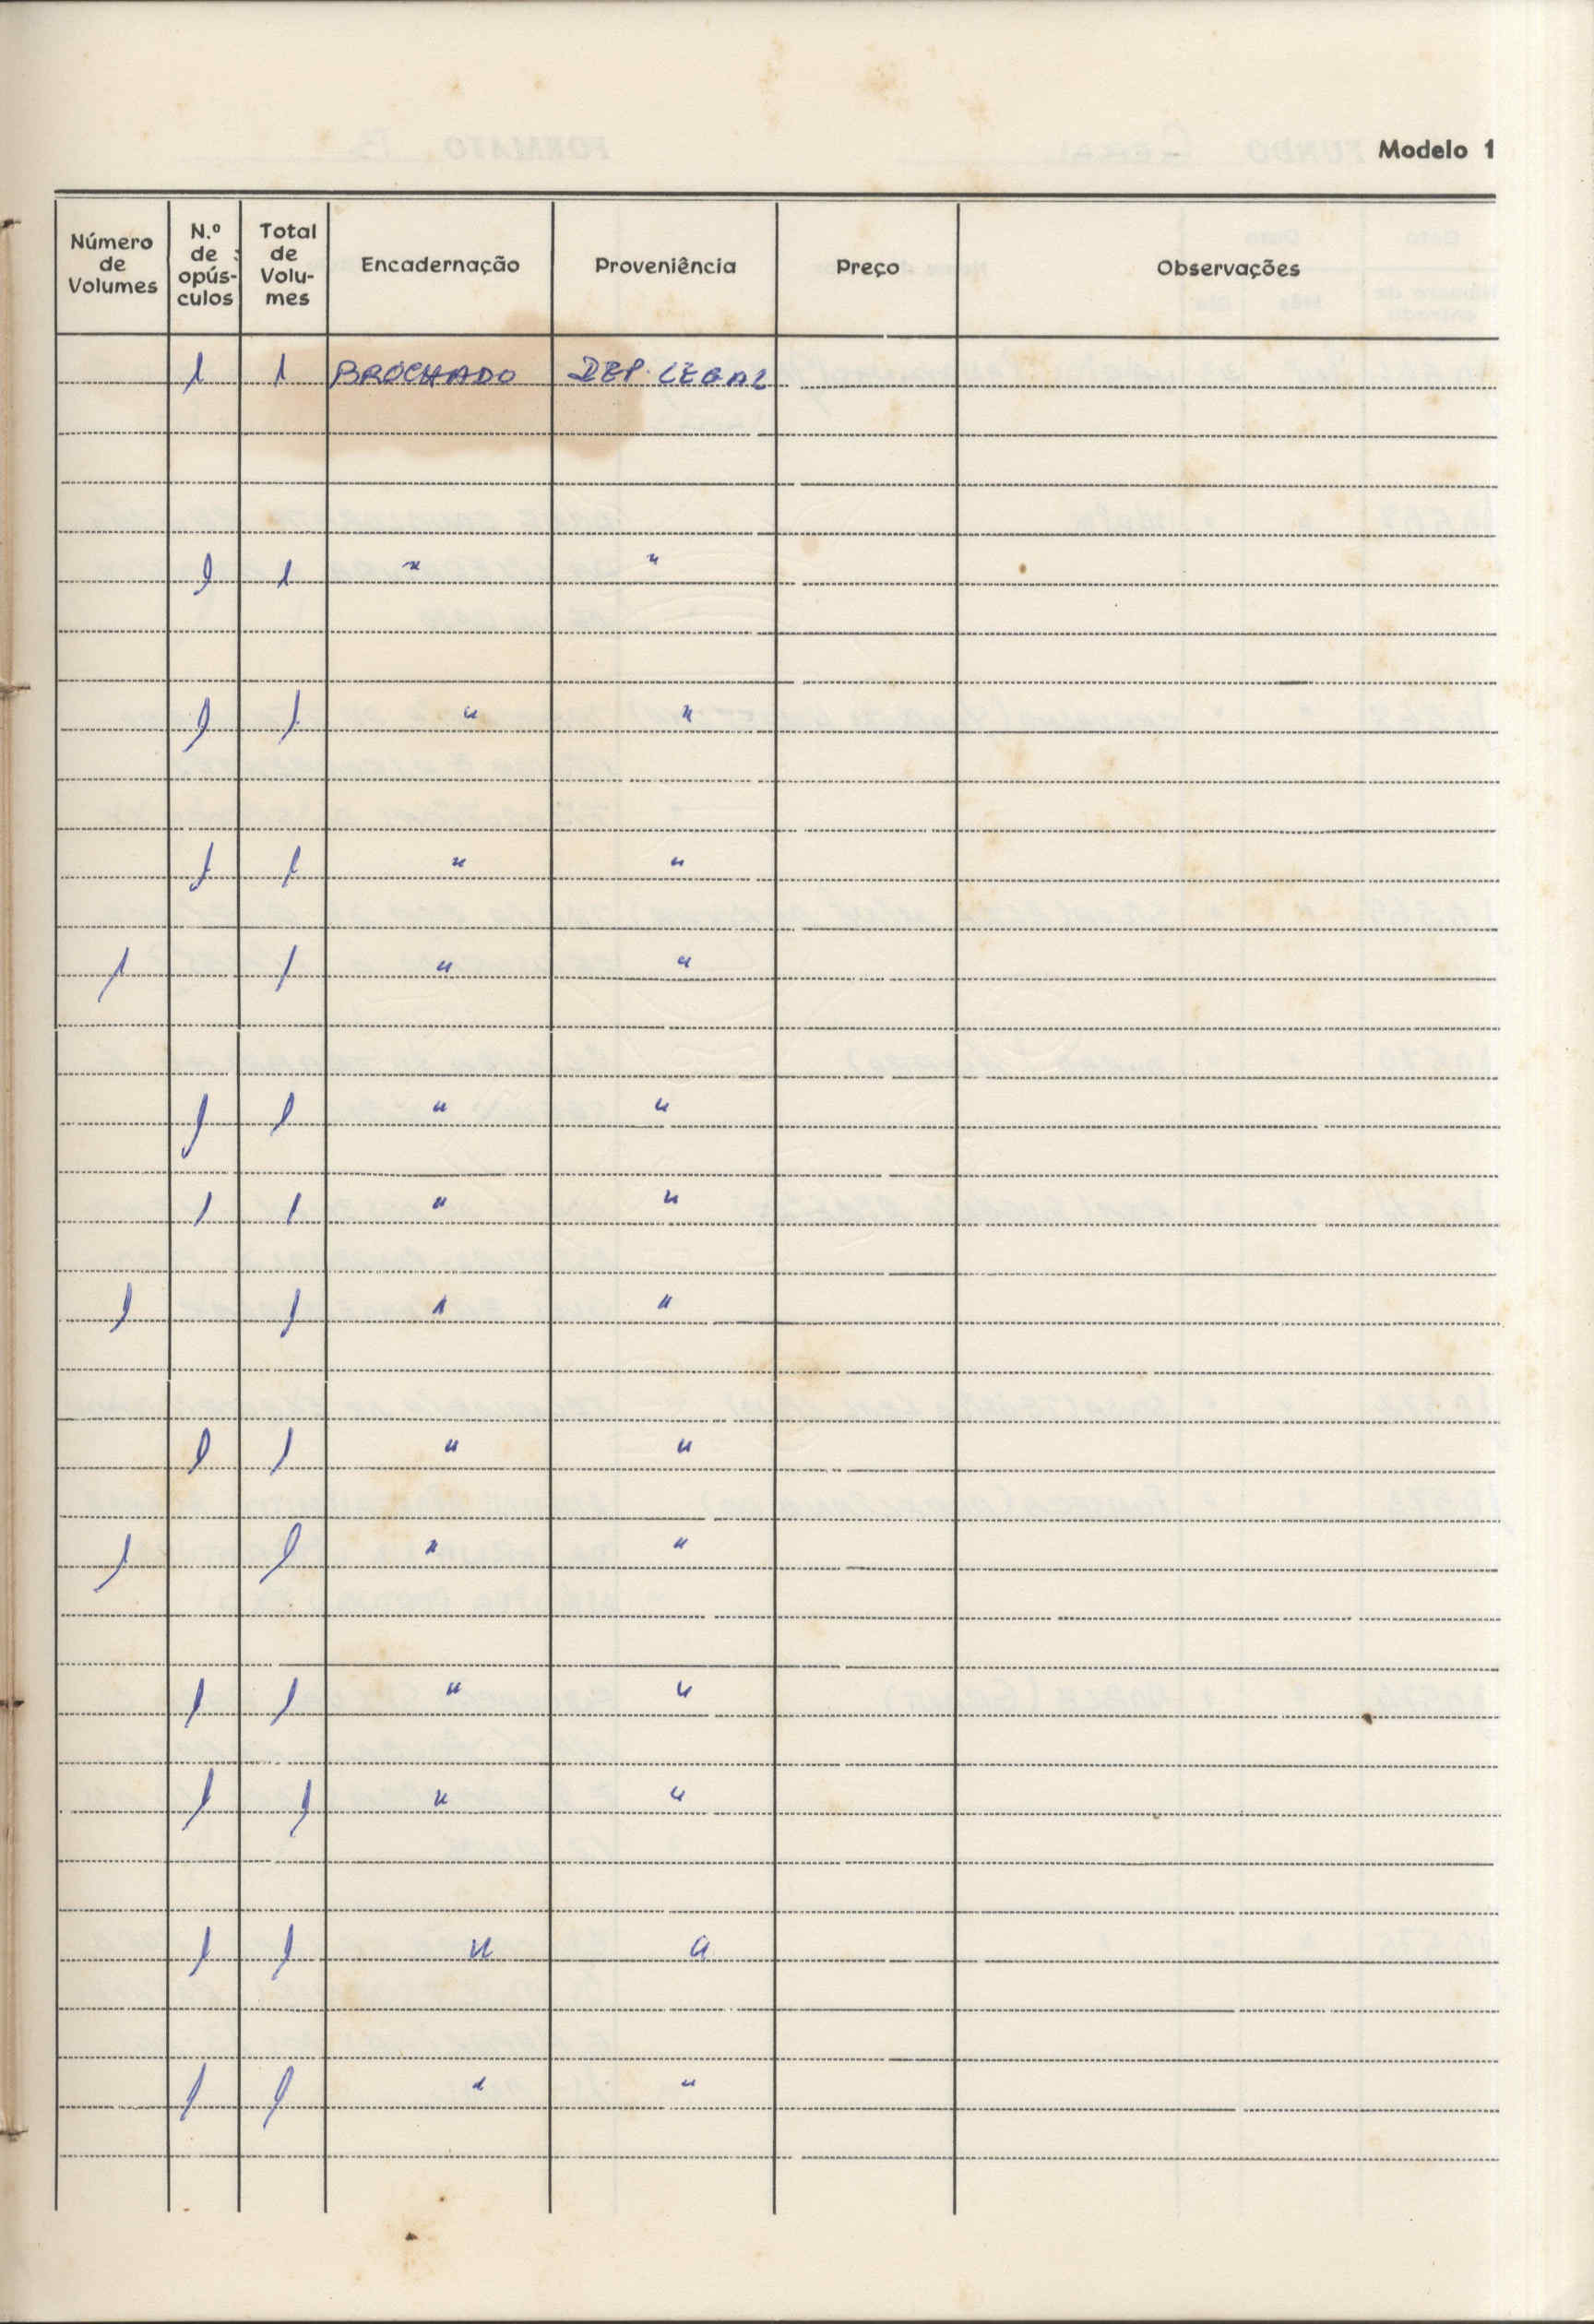 Modelo 1
Número de Volumes N.º de opús-culos Total de Volu-mes Encadernação Proveniência Preço Observações
1 1 BROCHADO DEP. LEGAL
1 1 " "
1 1 " "
1 1 " "
1 1 " "
1 1 " "
1 1 " "
1 1 " "
1 1 " "
1 1 " "
1 1 " "
1 1 " "
1 1 " "
1 1 " "